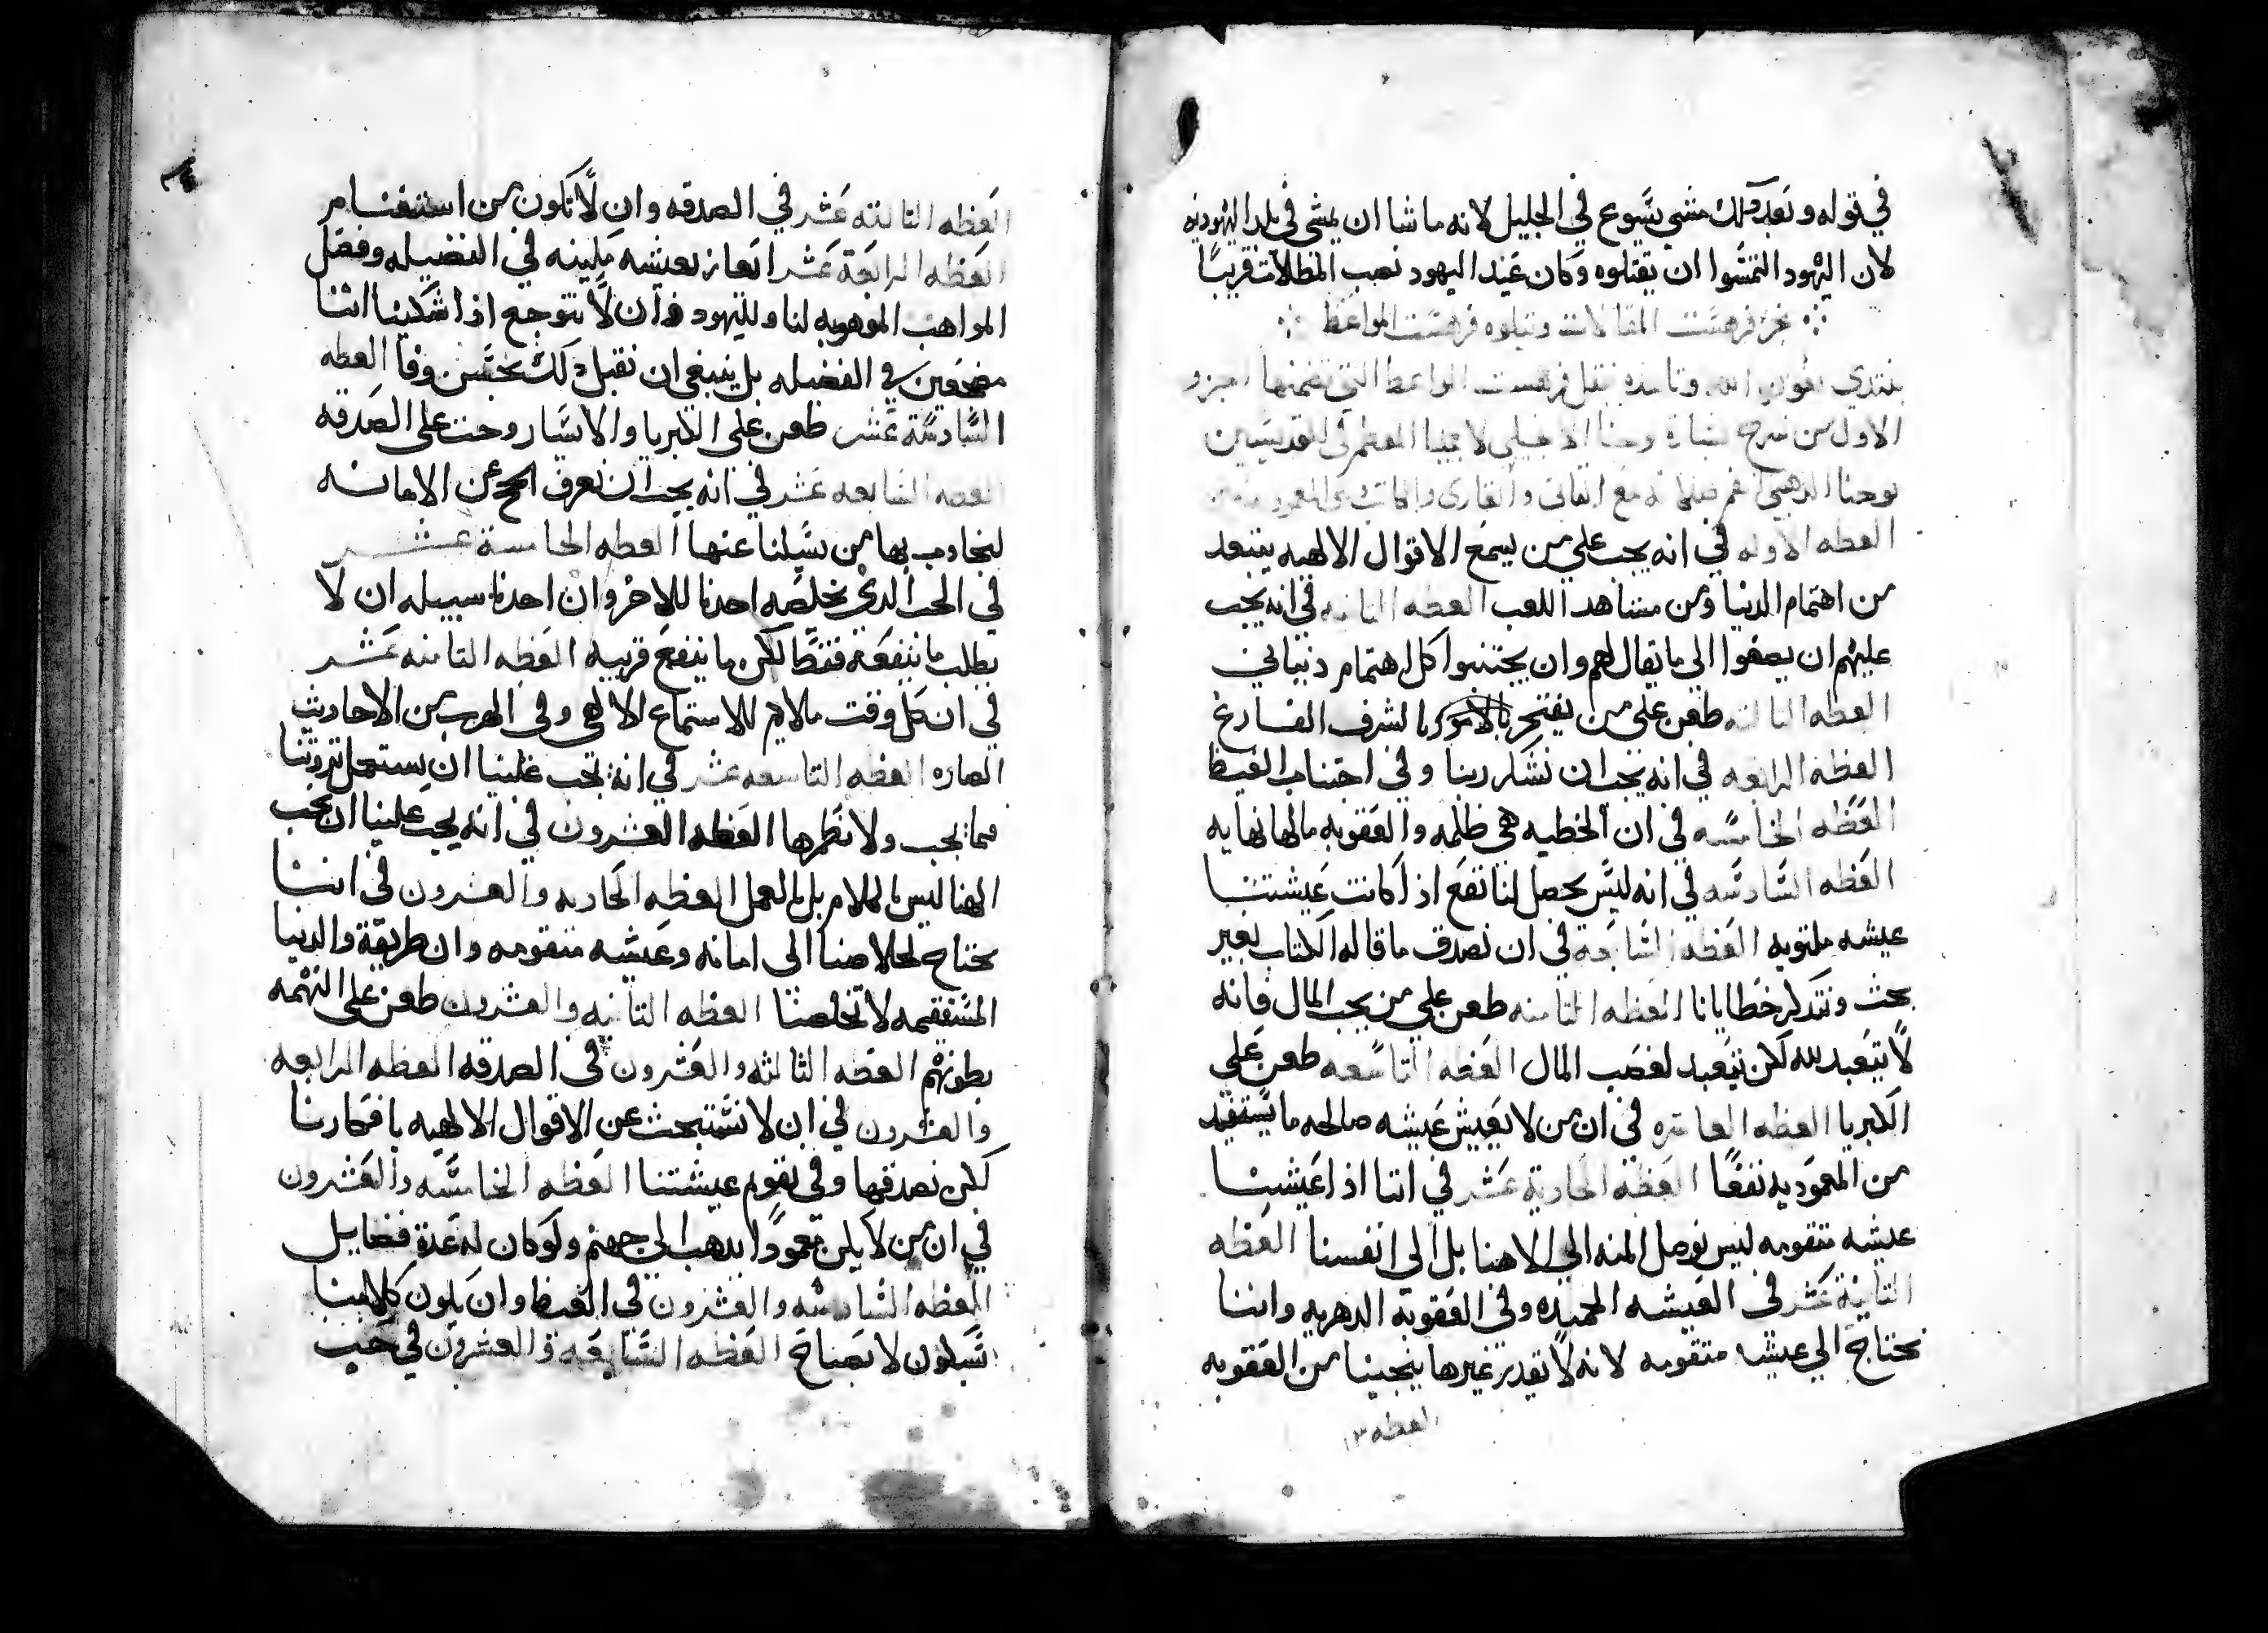 في قوله وبعد ذلك مشي يسوع في الجليل لانه ما شا ان يمشي في بلد اليهوديه
لان اليهود التمسوا ان يقتلوه وكان عيد اليهود نصب المظلات قريبًا
نجز فهرست المقالات ويتلوه فهرست المواعظ
نبتدي بعون الله وتاييده بنقل فهرست المواعظ التي تضمنها الجزو
الاول من شرح بشارة يوحنا الانجيلي لابينا المعظم في القديسين
يوحنا الدهبي فم مع والقاري والكاتب
العظه الاوله في انه يجب علي من يسمع الاقوال الالهيه يبتعد
من اهتمام الدنيا ومن مشاهد اللعب العظه التانيه في انه يجب
عليهم ان يصغوا الي ما يقال لهم وان يجتنبوا كل اهتمام دنياني
العظه التالته طعن علي من يفتخر بالشرف الفارغ
العظه الرابعه في انه يجب ان نشكر ربنا وفي اجتناب الغيظ
العظه الخامسه في ان الخطيه هي ظلمه والعقوبه ما لها نهايه
العظه السادسه في انه ليس يحصل لنا نفع اذا كانت عيشتنا
عيشه ملتويه العظه السابعة في ان نصدق ما قاله الكتاب بغير
بحث ونتدكر خطايانا العظه التامنه طعن علي من يحب المال فانه
لا يتعبد لله لكن يتعبد لغصب المال العظه التاسعه طعن علي
الكبريا العظه العاشره في ان من لا يعيش عيشه صالحه ما يستفيد
من المعموديه نفعًا العظة الحادية عشر في اننا اذا عيشنا
عيشه متقومه ليس نوصل المنه الي الاهنا بل الي انفسنا العظه
التانية عشر في العيشه الحميده وفي العقوبة الدهريه واننا
نحتاج الي عيشه متقومه لانه لا تقدر غيرها ينجينا من العقوبه
العظه ١٣
العظه التالته عشر في الصدقه وان لا تكون من استغنام
العظه الرابعة عشر ان عيشه في الفضيله وفصل
المواهب الموهوبه لنا ولليهود وان لا نتوجع اذا شكينا اننا
في الفضيله بل ينبغي ان نقبل دلك بحسن وفا العظه
السادسة عشر طعن علي الكبريا والايسار وحت علي الصدقه
العظه السابعه عشر في انه يجب ان نعرف الحجج عن الامانه
لنجاوب بها من يسيلنا عنها العظه الخامسة عشر
في الحب الدي يخلصه احدنا للاخر وان احدنا سبيله ان لا
يطلب ما ينفعه فقط لكن ما ينفع قريبه العظه التامنه عشر
في ان كل وقت ملايم للاستماع الالهي وفي الهرب من الاحاديت
الضاره العظه التاسعه عشر في انه يجب علينا ان نستعمل تروتنا
فيما يجب ولا نطمرها العظه العشرون في انه يجب علينا ان نحب
الهنا ليس بالكلام بل بالعمل العظه الحاديه والعشرون في اننا
نحتاج لخلاصنا الي امانه وعيشه متقومه وان طريقة والدينا
المستقيمه لا تخلصنا العظه التانيه والعشرون طعن علي النهمه
بطونهم العظه الثالثه والعشرون في الصدقه العظه الرابعه
والعشرون في ان لا نستبحث عن الاقوال الالهيه بافكارنا
لكن نصدقها وفي تقويم عيشتنا العظه الخامسه والعشرون
في ان من لا يكن معمودًا يدهب الي جهنم ولو كان له عدة فضايل
العظه السادسه والعشرون في الغيظ وان يكون كلامنا
بسكون لا بصياح العظه السابعة والعشرون في حب